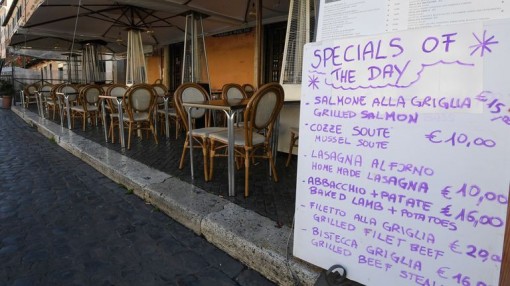 SPECIALS OF
THE DAY
- SALMONE ALLA GRIGLIA €15,
GRILLED SALMON
- COZZE SOUTE €10,00
MUSSEL SOUTE
- LASAGNA AL FORNO
HOME MADE LASAGNA €10,00
- ABBACCHIO + PATATE €16,00
BAKED LAMB + POTATOES
- FILETTO ALLA GRIGLIA
GRILLED FILET BEEF
- BISTECCA GRIGLIA
GRILLED BEEF